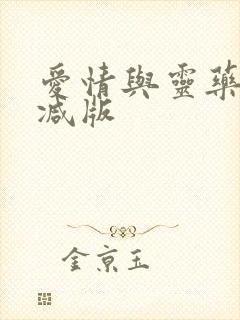 愛情與靈藥
減版
金京玉